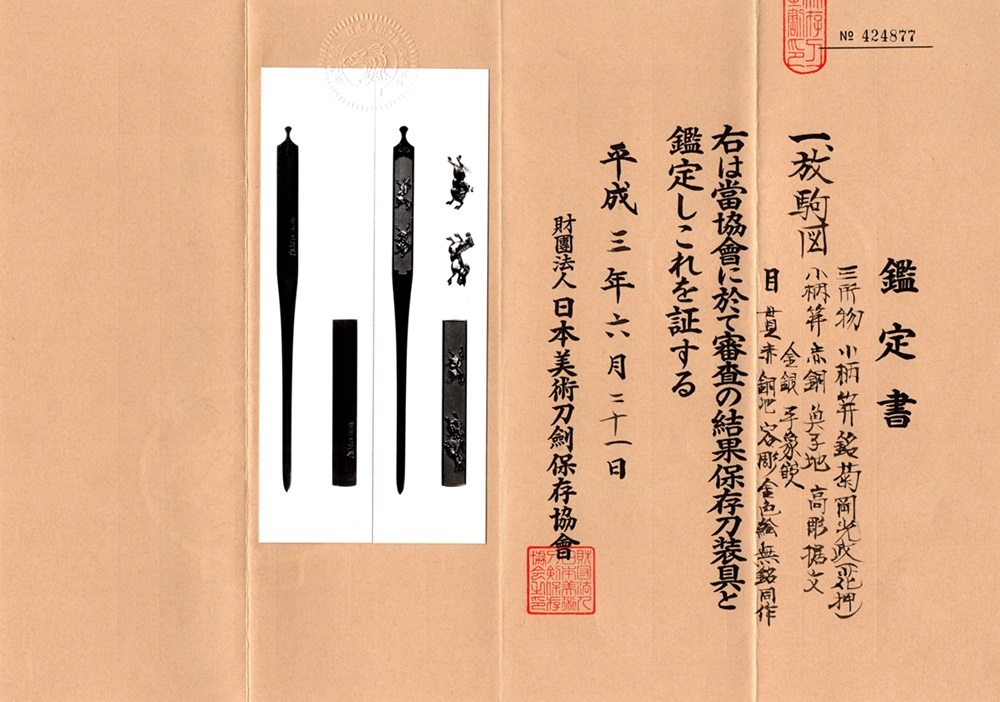 № 424877
鑑定書
一、放駒図
三所物 小柄笄銘菊岡光政(花押)
小柄笄 赤銅 魚子地 高彫据文
金銀平象嵌
目貫赤銅地容彫金色絵無銘同作
右は當協會に於て審査の結果保存刀装具と
鑑定しこれを証する
平成三年六月二十一日
財團法人 日本美術刀劍保存協會